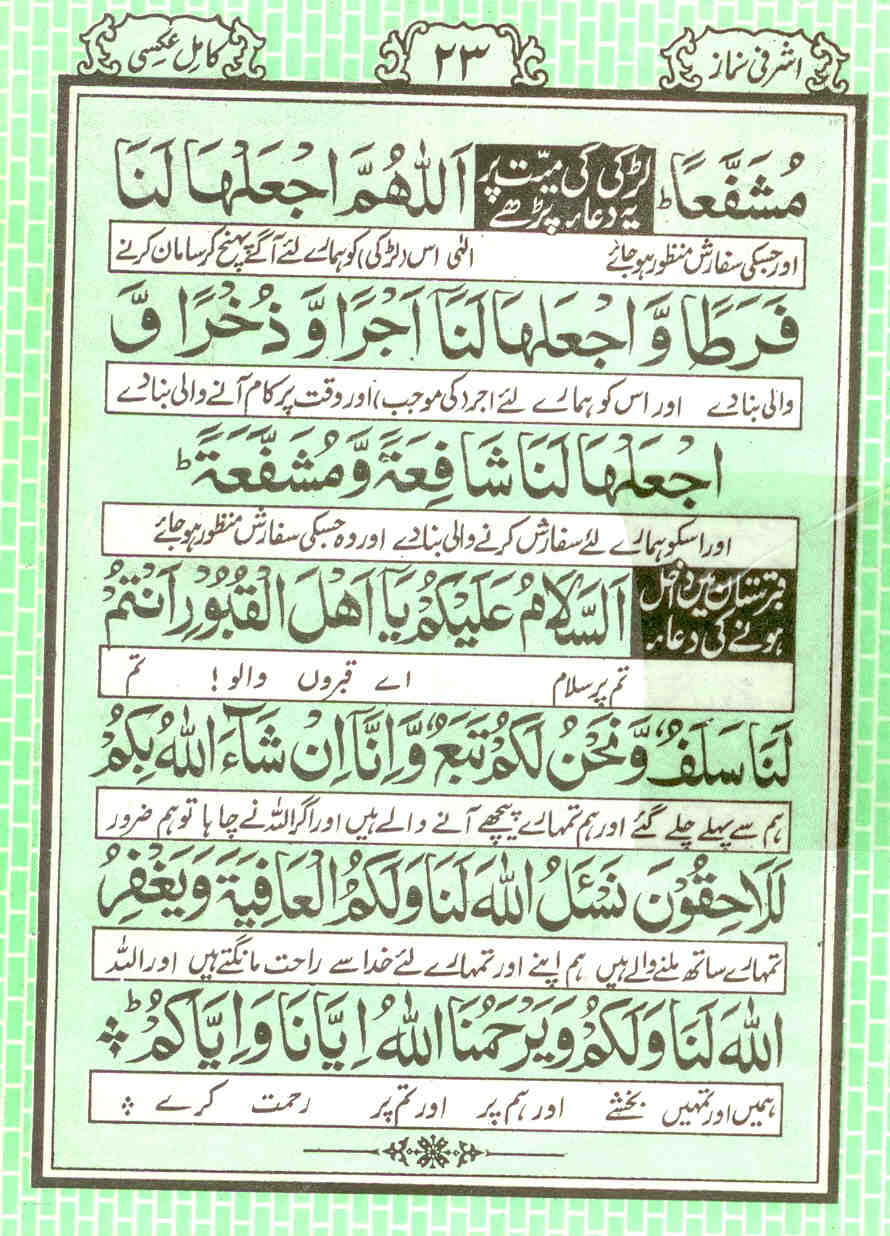 اشرفی نماز ۲۳ کامل عکسی
مُشَفَّعًا ؕ لڑکی کی میّت پر یہ دعاء پڑھے اَللّٰهُمَّ اجْعَلْهَا لَنَا
اور جسکی سفارش منظور ہو جائے الٰہی اس (لڑکی) کو ہمارے لئے آگے پہنچ کر سامان کرنے
فَرَطًا وَّ اجْعَلْهَا لَنَا اَجْرًا وَّ ذُخْرًا وَّ
والی بنا دے اور اس کو ہمارے لئے اجر (کی موجب) اور وقت پر کام آنے والی بنا دے
اجْعَلْهَا لَنَا شَافِعَةً وَّ مُشَفَّعَةً ؕ
اور اسکو ہمارے لئے سفارش کرنے والی بنا دے اور وہ جسکی سفارش منظور ہو جائے
قبرستان میں داخل ہونے کی دعاء اَلسَّلَامُ عَلَيْكُمْ يَا اَهْلَ الْقُبُوْرِ اَنْتُمْ
تم پر سلام اے قبروں والو! تم
لَنَا سَلَفٌ وَّ نَحْنُ لَكُمْ تَبَعٌ وَّ اِنَّا اِنْ شَآءَ اللّٰهُ بِكُمْ
ہم سے پہلے چلے گئے اور ہم تمہارے پیچھے آنے والے ہیں اور اگر اللہ نے چاہا تو ہم ضرور
لَلَاحِقُوْنَ نَسْئَلُ اللّٰهَ لَنَا وَلَكُمُ الْعَافِيَةَ وَيَغْفِرُ
تمہارے ساتھ ملنے والے ہیں ہم اپنے اور تمہارے لئے خدا سے راحت مانگتے ہیں اور اللہ
اللّٰهَ لَنَا وَلَكُمْ وَيَرْحَمُنَا اللّٰهُ اِيَّانَا وَاِيَّاكُمْ ؕ
ہمیں اور تمہیں بخشے اور ہم پر اور تم پر رحمت کرے